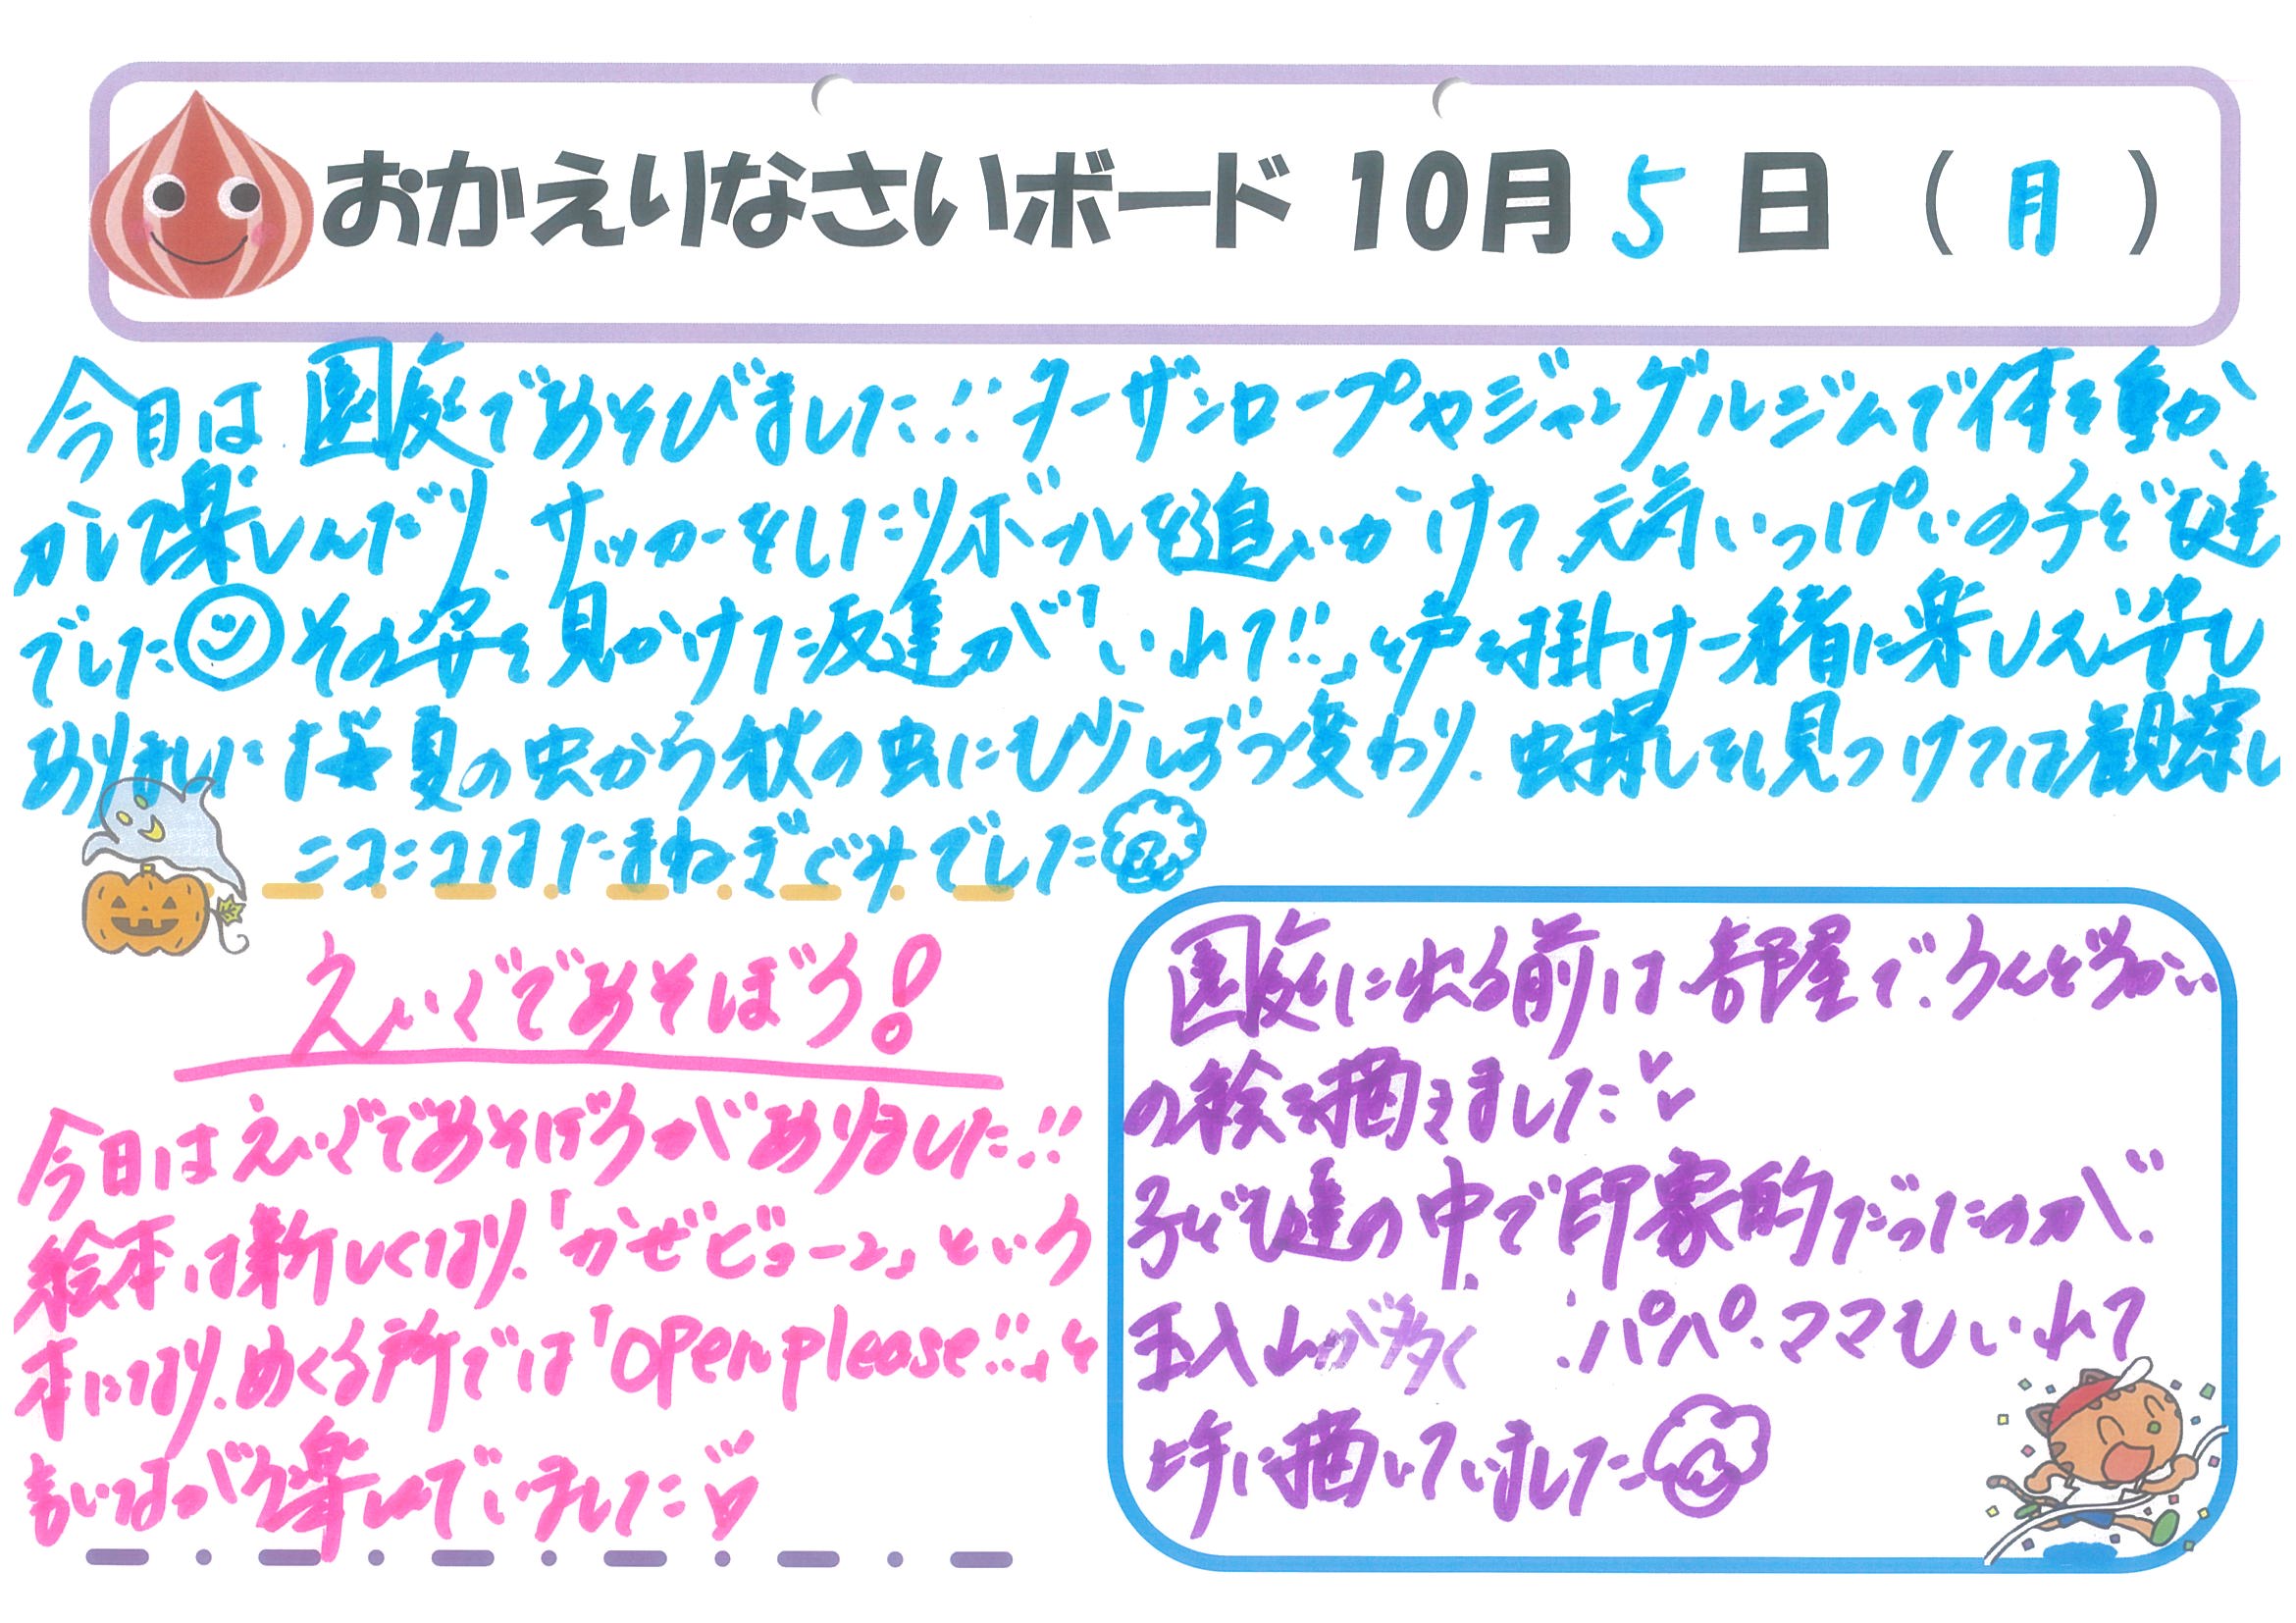 おかえりなさいボード 10月 5 日 ( 月 )
今日は園庭であそびました!! ターザンロープやジャングルジムで体を動か
かして楽しんだり、サッカーをしたりボールを追いかけて元気いっぱいの子ども達
でした その姿を見かけた友達が「いれて!!」と声を掛け一緒に楽しんだ姿も
ありました 夏の虫から秋の虫にも少しずつ変わり、虫探しをし見つけては観察し
ニコニコなたまねぎぐみでした
えいごであそぼう!
今日はえいごであそぼうがありました!!
絵本は新しくなり、「かぜビューン」という
本になり、めくる所では「open please!!」と
言いながら楽しんでいました
園庭に出る前は お部屋で、うんどうかい
の絵を描きました
子ども達の中で印象的だったのが、
玉入れが多く パパ、ママもいれて
上手に描いていました